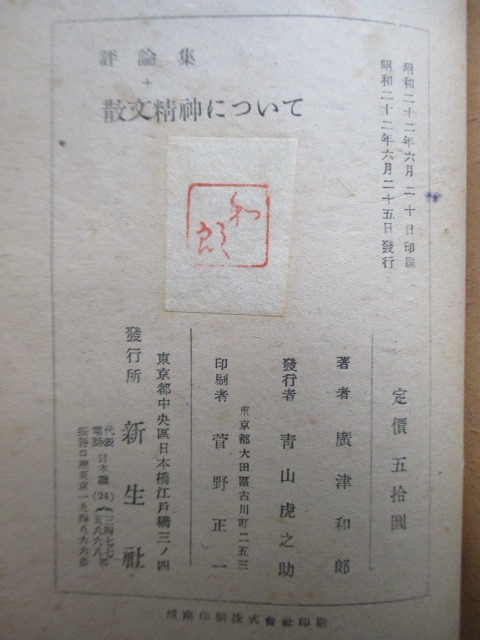 評論集
散文精神について
昭和二十二年六月二十日印刷
昭和二十二年六月二十五日發行
和郎
定價 五拾圓
著者 廣津和郎
發行者 青山虎之助
東京都大田區古川町二五三
印刷者 菅野正一
東京都中央區日本橋江戸橋三ノ四
發行所 新生社
代表
電話 日本橋(24)
城南印刷株式會社印刷